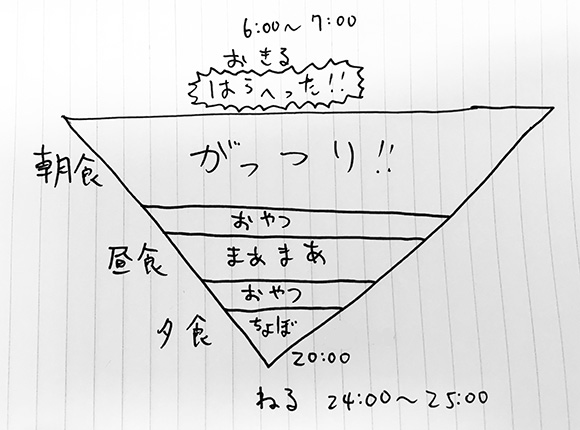 6:00～7:00
おきる
はらへった!!
朝食
がっつり!!
おやつ
昼食
まあまあ
おやつ
夕食
ちょぼ
20:00
ねる 24:00～25:00